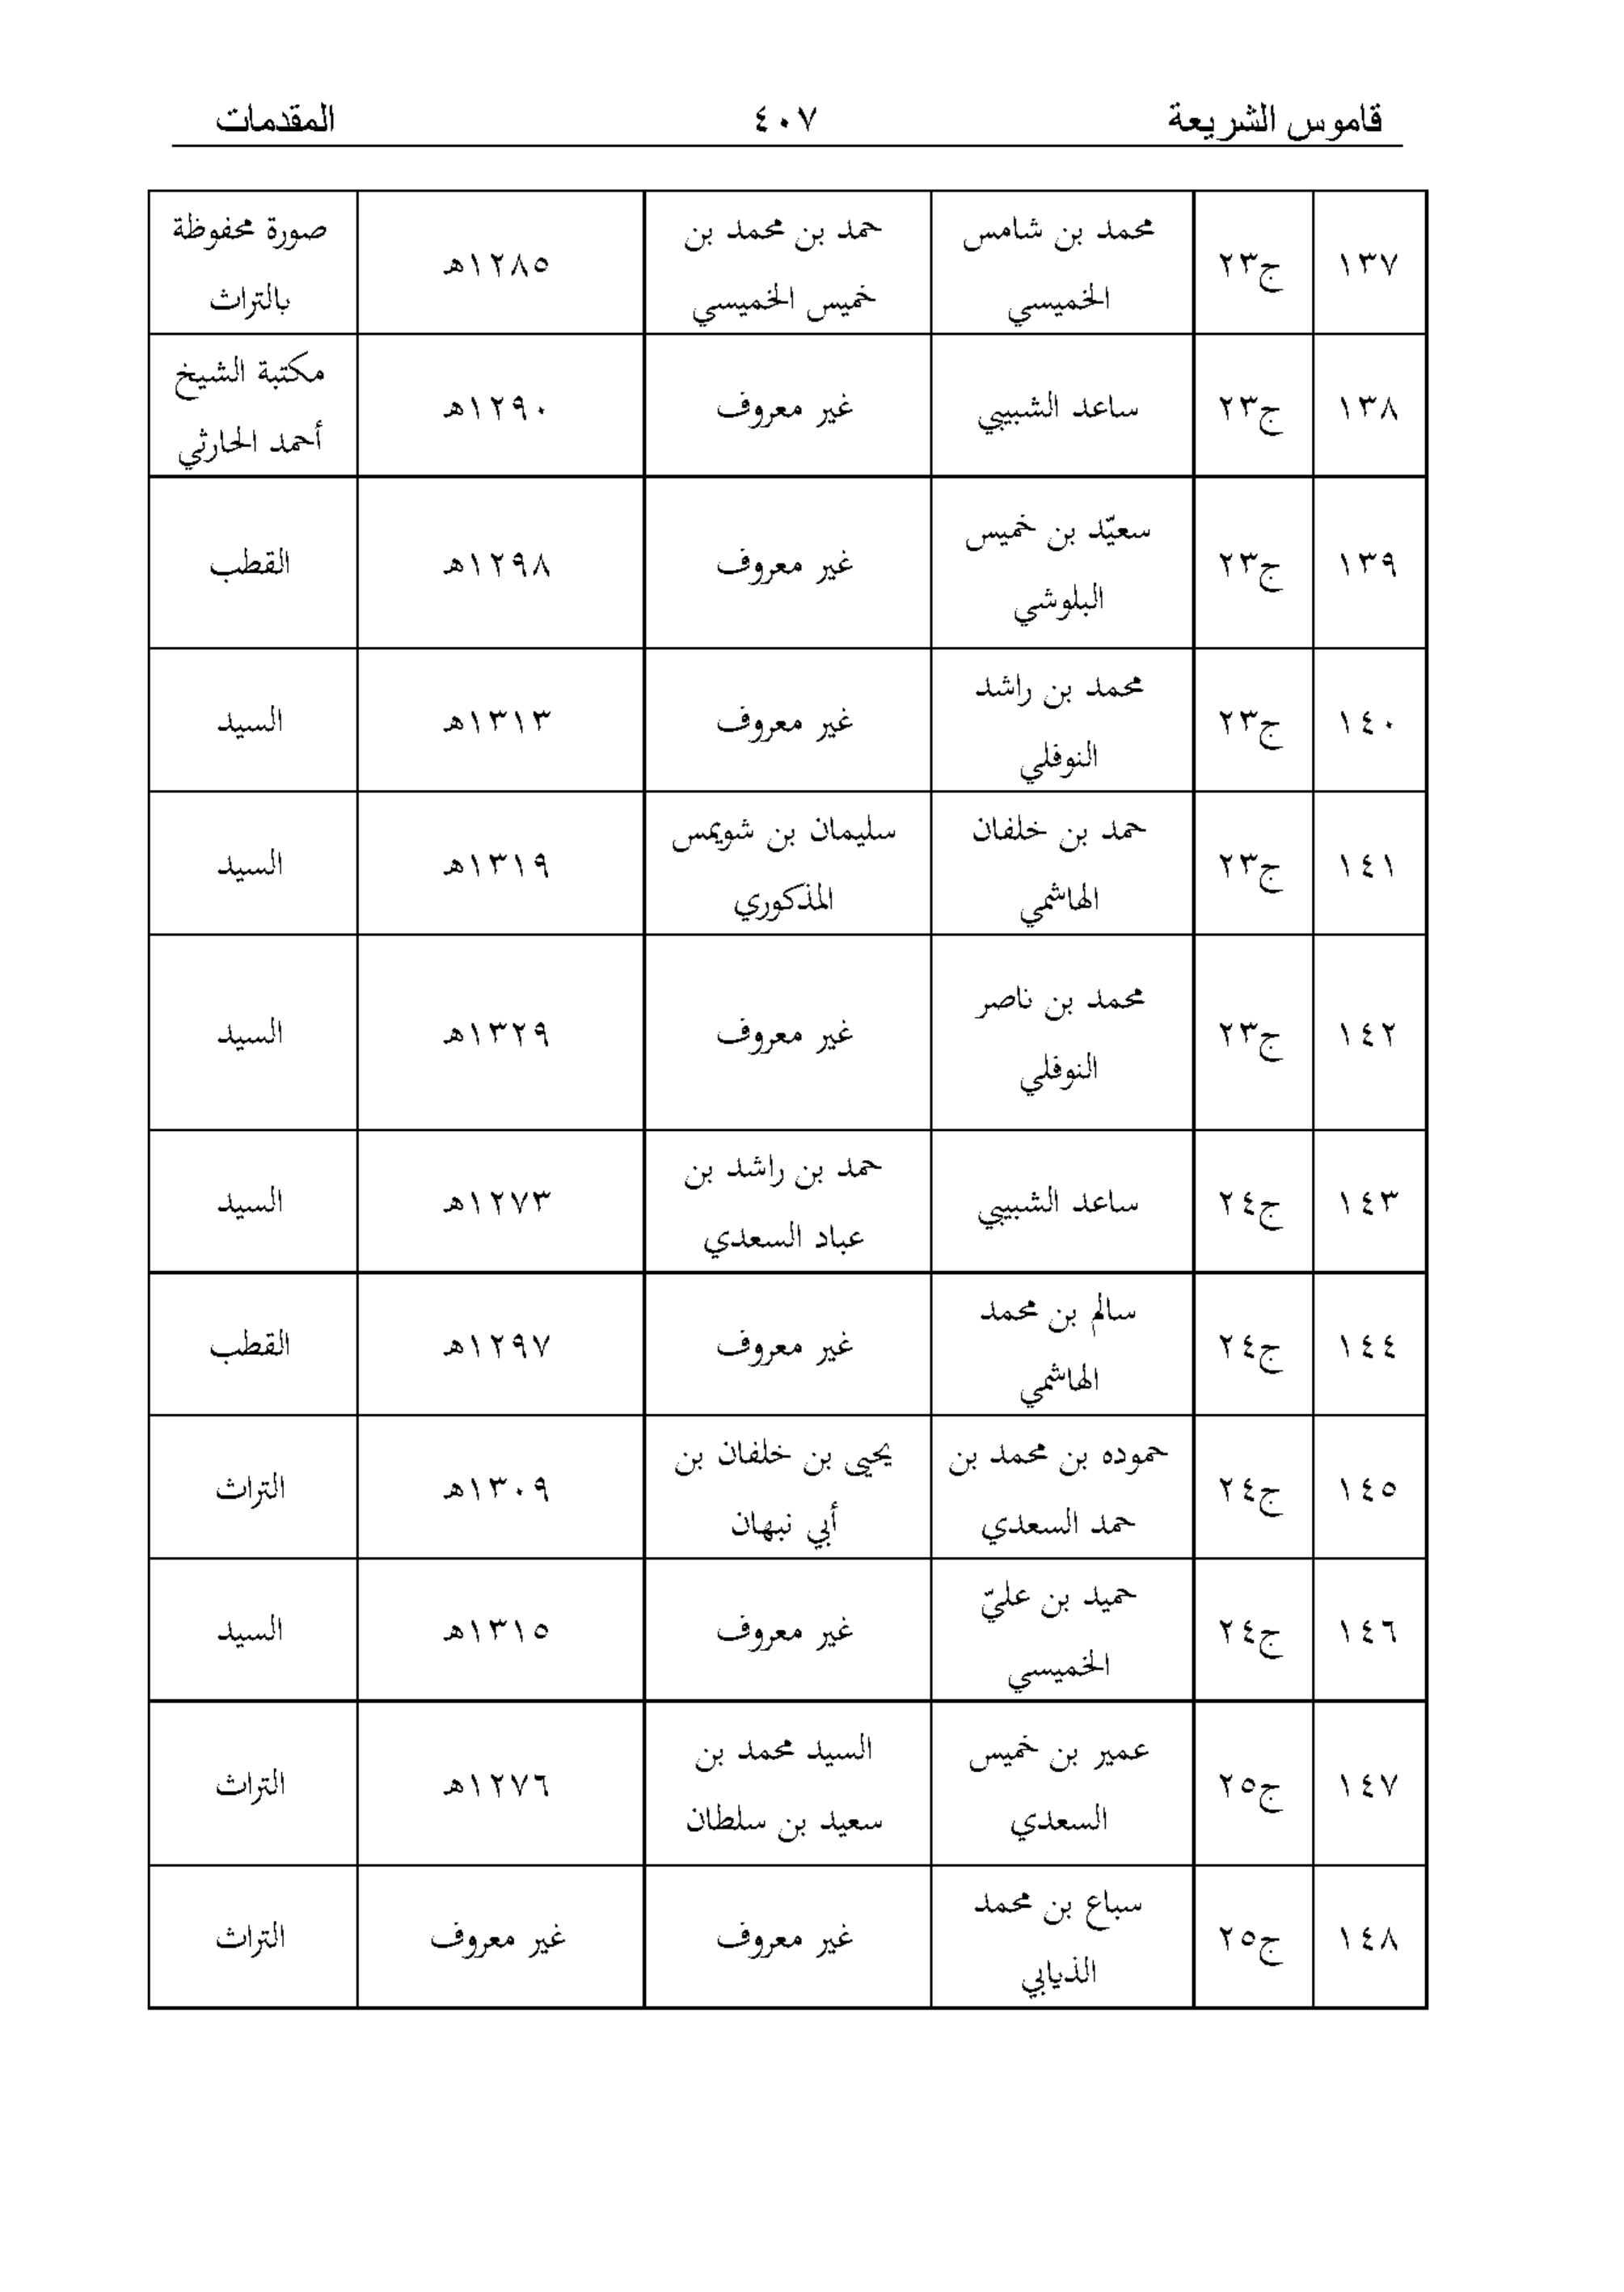 قاموس الشريعة ٤٠٧ المقدمات
١٣٧ ج٢٣ محمد بن شامس الخميسي حمد بن محمد بن خميس الخميسي ١٢٨٥هـ صورة محفوظة بالتراث
١٣٨ ج٢٣ ساعد الشبيبي غير معروف ١٢٩٠هـ مكتبة الشيخ أحمد الحارثي
١٣٩ ج٢٣ سعيّد بن خميس البلوشي غير معروف ١٢٩٨هـ القطب
١٤٠ ج٢٣ محمد بن راشد النوفلي غير معروف ١٣١٣هـ السيد
١٤١ ج٢٣ حمد بن خلفان الهاشمي سليمان بن شويمس المذكوري ١٣١٩هـ السيد
١٤٢ ج٢٣ محمد بن ناصر النوفلي غير معروف ١٣٢٩هـ السيد
١٤٣ ج٢٤ ساعد الشبيبي حمد بن راشد بن عباد السعدي ١٢٧٣هـ السيد
١٤٤ ج٢٤ سالم بن محمد الهاشمي غير معروف ١٢٩٧هـ القطب
١٤٥ ج٢٤ حموده بن محمد بن حمد السعدي يحيى بن خلفان بن أبي نبهان ١٣٠٩هـ التراث
١٤٦ ج٢٤ حميد بن عليّ الخميسي غير معروف ١٣١٥هـ السيد
١٤٧ ج٢٥ عمير بن خميس السعدي السيد محمد بن سعيد بن سلطان ١٢٧٦هـ التراث
١٤٨ ج٢٥ سباع بن محمد الذيابي غير معروف غير معروف التراث